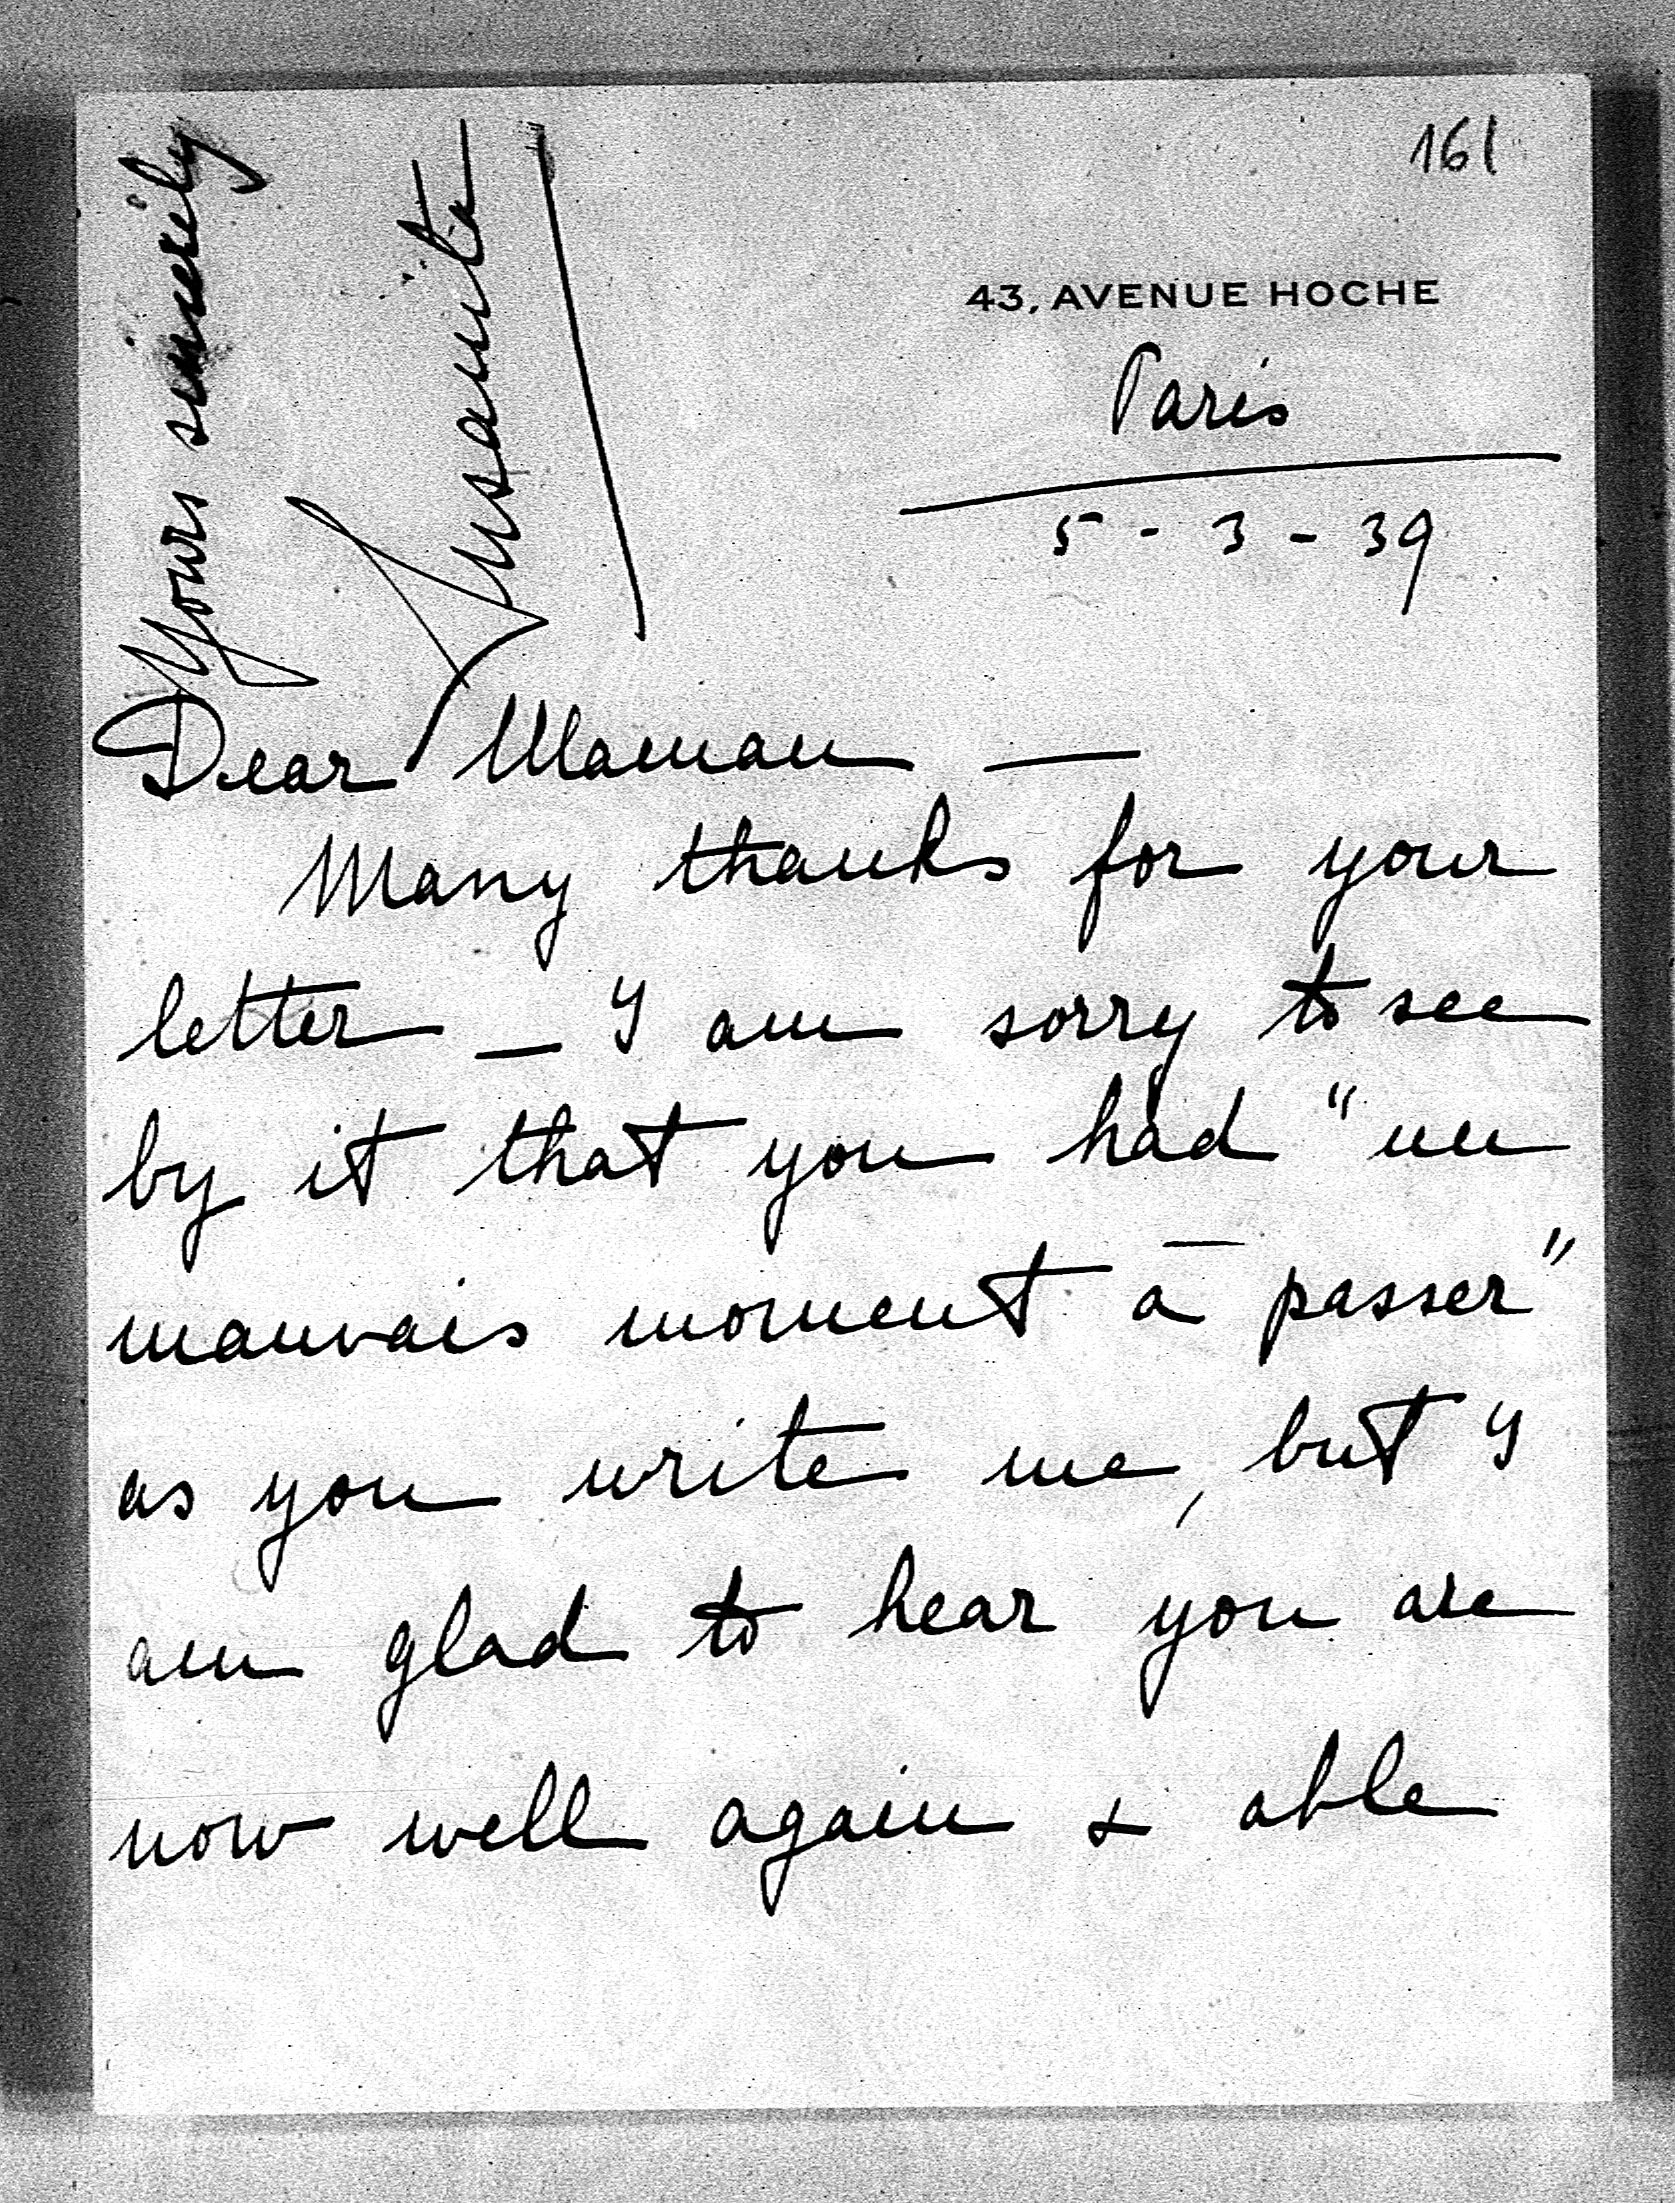 161
43, AVENUE HOCHE
Paris
5 - 3 - 39
Dear Maman —
Many thanks for your
letter — I am sorry to see
by it that you had "un
mauvais moment à passer"
as you write me, but I
am glad to hear you are
now well again & able
Yours sincerely
Susanita